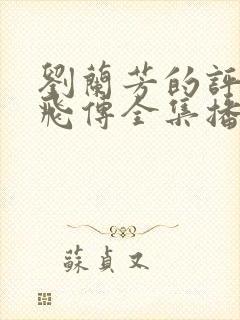 劉蘭芳的評
飛傳全集播
蘇貞又